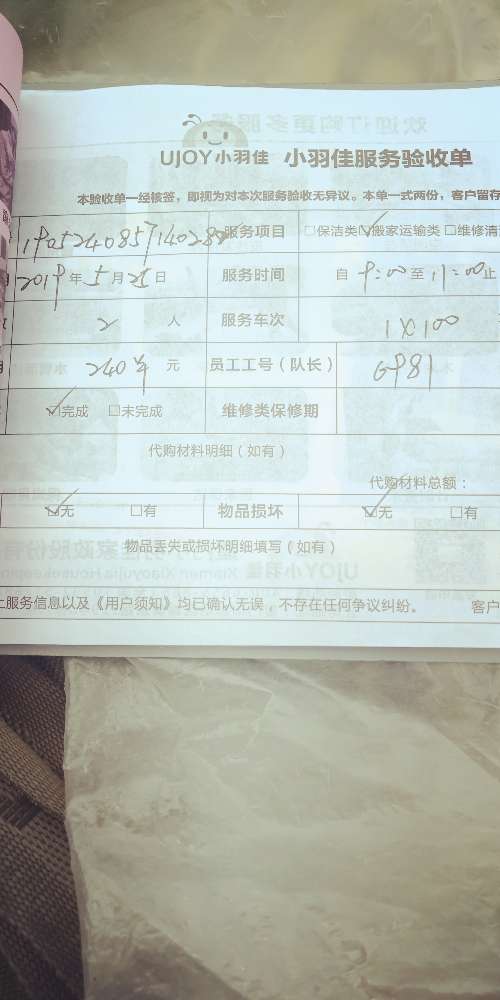 UJOY小羽佳 小羽佳服务验收单
本验收单一经核签，即视为对本次服务验收无异议。本单一式两份，客户留存
服务项目 □保洁类☑搬家运输类 □维修清
2019年5月25日 服务时间 自 9:00 至 11:00 止
2 人 服务车次 1×100
240 元 员工工号（队长） 6981
☑完成 □未完成 维修类保修期
代购材料明细（如有）
代购材料总额：
☑无 □有 物品损坏 ☑无 □有
物品丢失或损坏明细填写（如有）
上服务信息以及《用户须知》均已确认无误，不存在任何争议纠纷。 客户